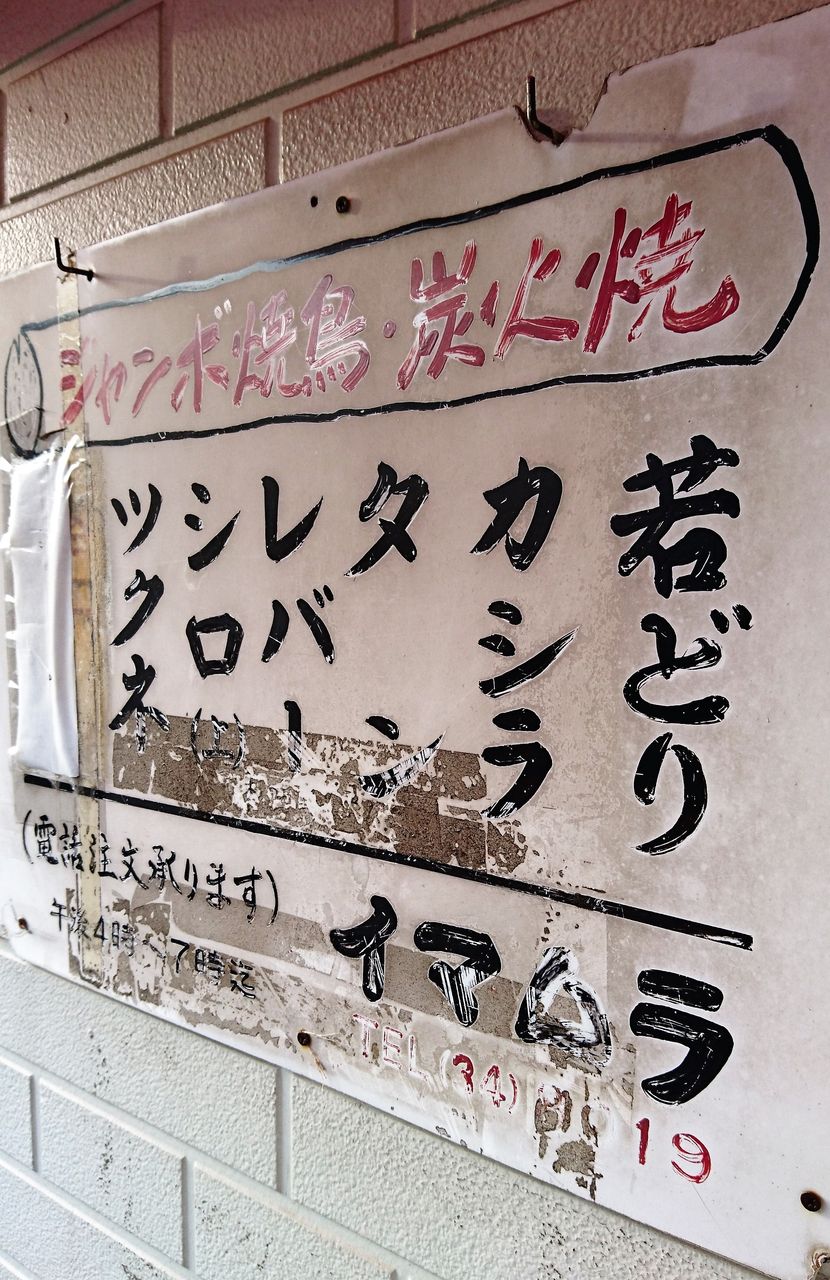 ジャンボ焼鳥・炭火焼
若どり
カシラ
タン
レバー
シロ(上)
ツクネ
(電話注文承ります)
午後4時〜7時迄
イマムラ
TEL(34) 19